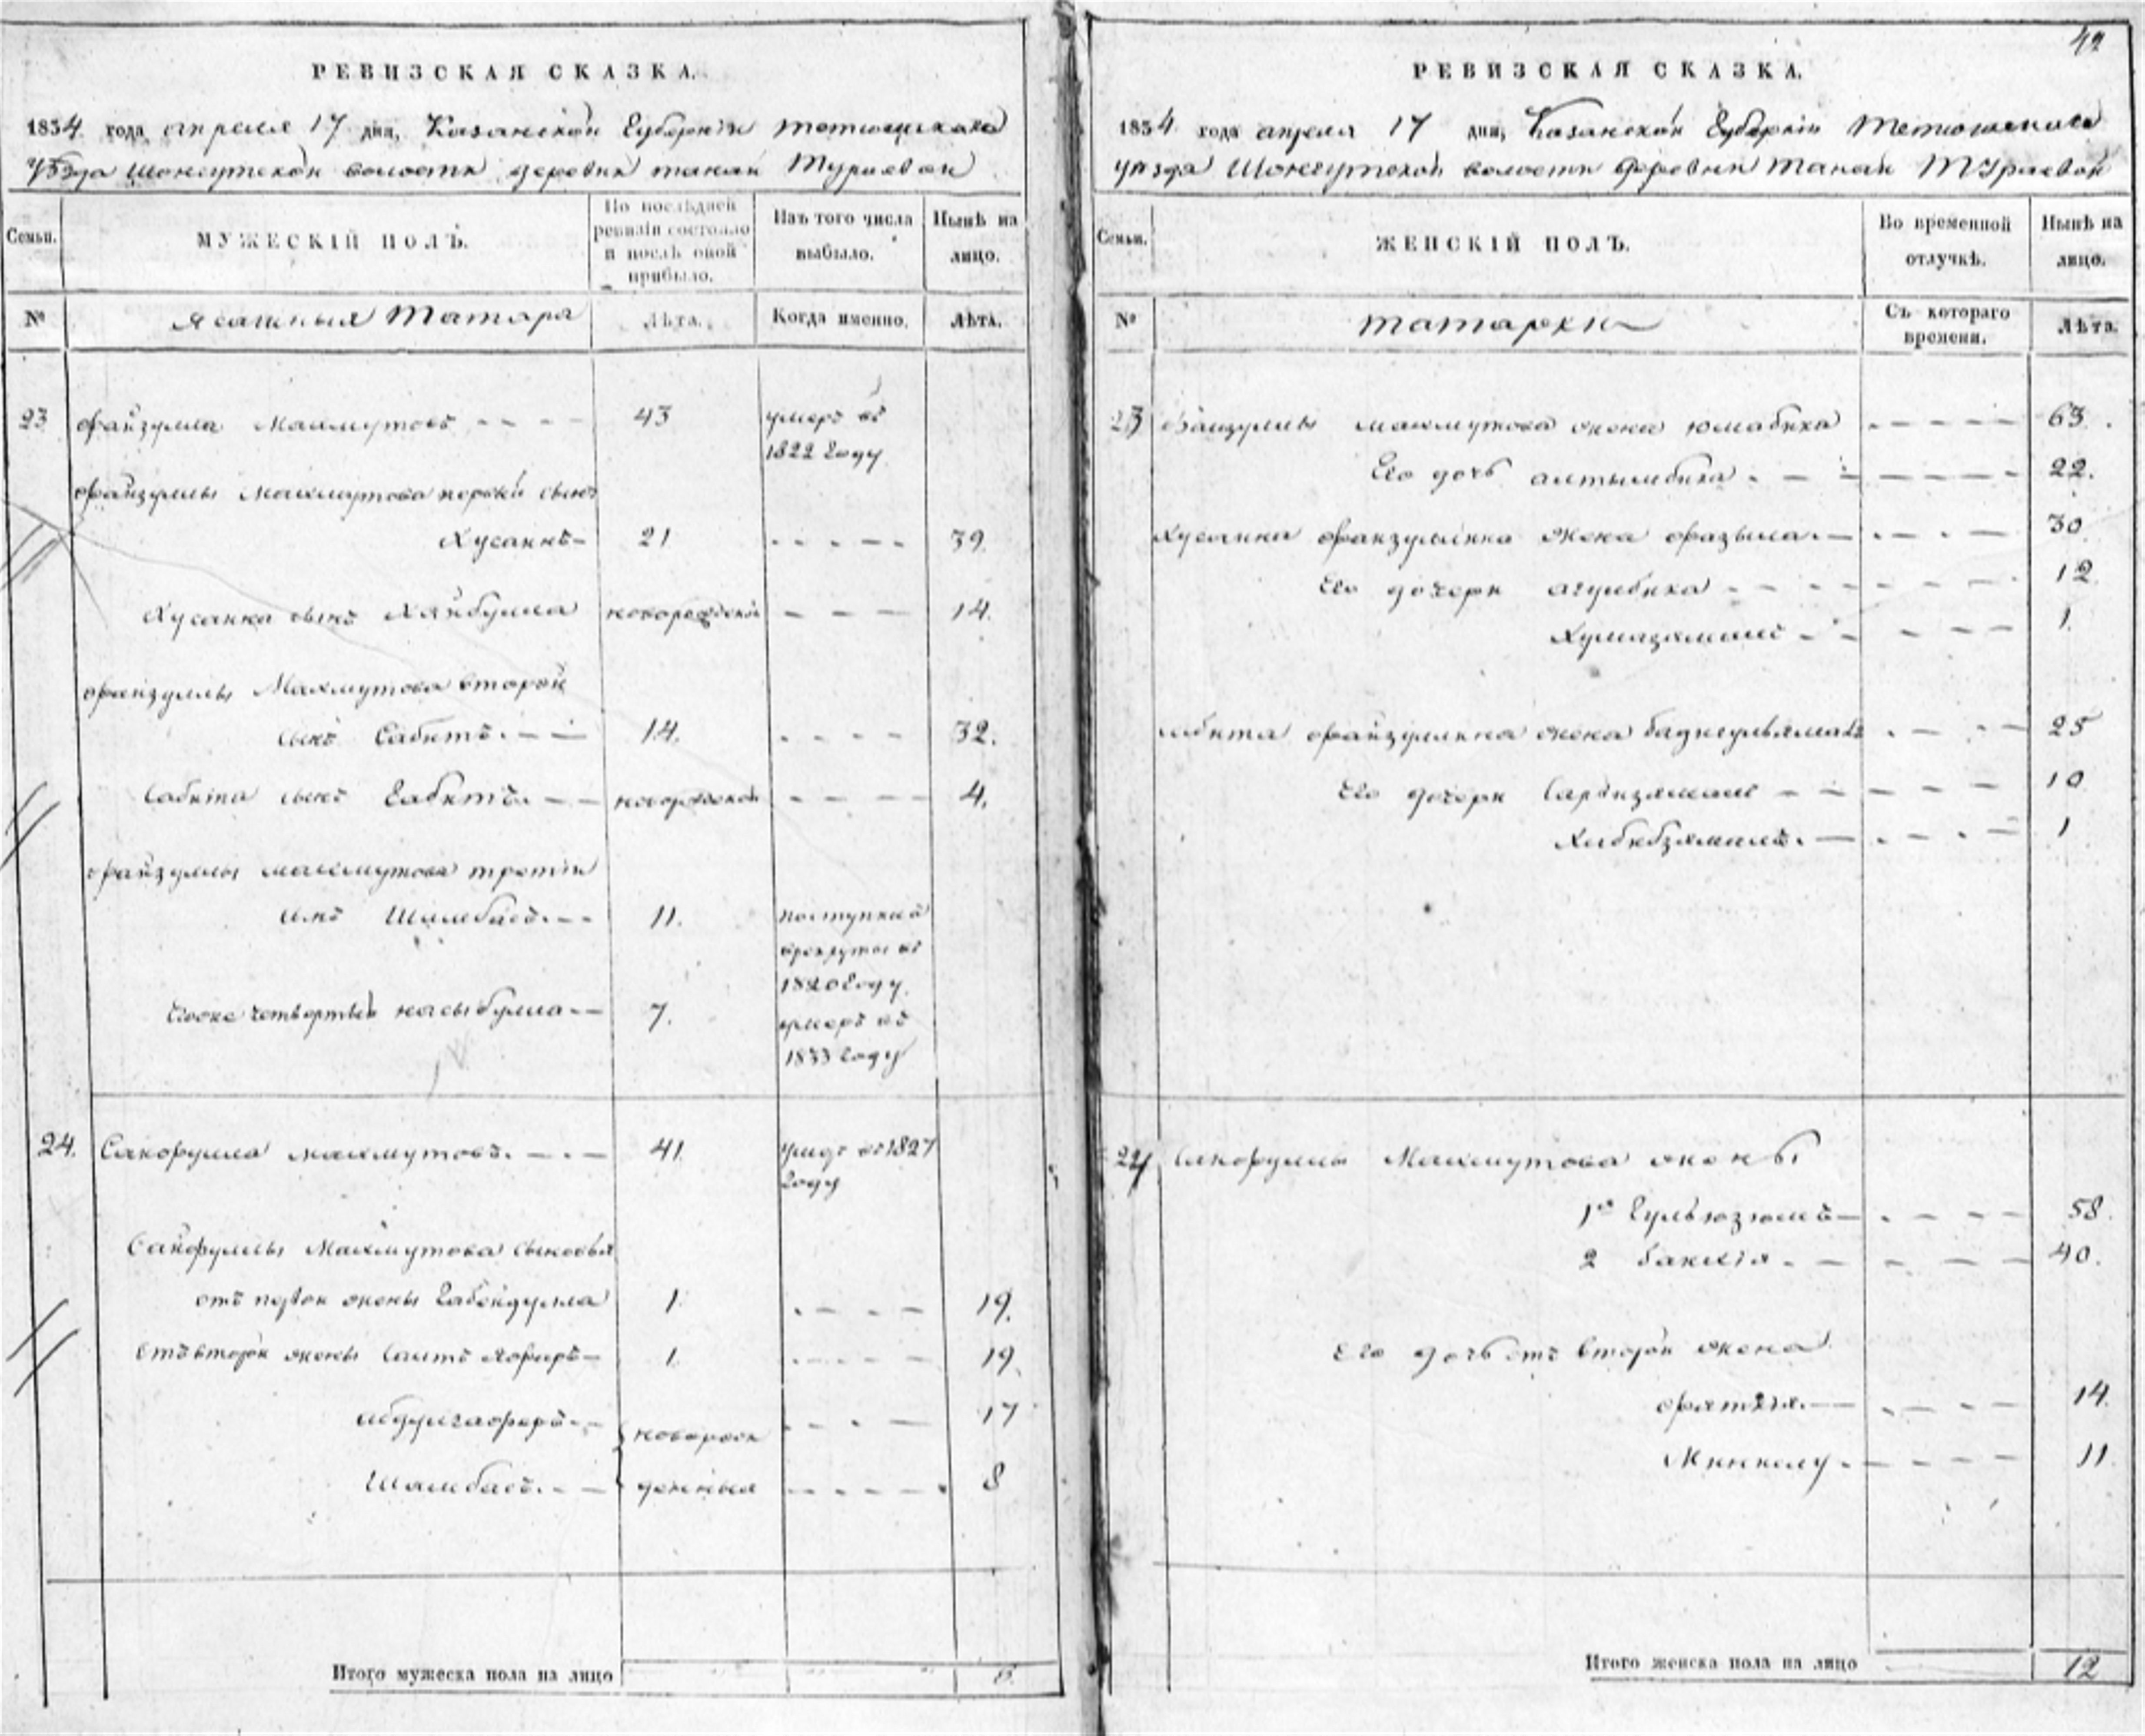 РЕВИЗСКАЯ СКАЗКА.
1834 года апреля 17 дня, Казанской Губернiи Тетюшскаго
уѣзда Шонгутской волости деревни танай Тураевой
Семьи.
МУЖЕСКIЙ ПОЛЪ.
По послѣдней ревизiи состояло и послѣ оной прибыло.
Изъ того числа выбыло.
Нынѣ на лицо.
№
Ясашныя Татара
Лѣта.
Когда именно.
Лѣта.
23 файзулла Махмутовъ 43 умеръ въ
1822 году
файзуллы Махмутова первой сынъ
Хусаинъ 21 39.
Хусаина сынъ Хайбулла новорожденой 14.
файзуллы Махмутова второй
сынъ Сабитъ 14. 32.
Сабита сынъ Габитъ новорожденой 4.
файзуллы махмутова третiй
сынъ Шамбасъ 11. поступилъ
врекруты въ
1820 году
Егоже четвертый насыбулла 7. умеръ въ
1833 году
24. Сайфулла махмутовъ 41. въ 1827
году
Сайфуллы Махмутова сыновья
отъ первой жены 1. 19.
отъ второй жены 1. 19.
абдулгафаръ новорож 17
Шамбасъ денныя 8
Итого мужеска пола на лицо
42
РЕВИЗСКАЯ СКАЗКА.
1834 года апреля 17 дня, Казанской Губернiи Тетюшскаго
уезда Шонгутской волости деревни Танай Тураевой
Семьи.
ЖЕНСКIЙ ПОЛЪ.
Во временной отлучкѣ.
Нынѣ на лицо.
№
татарки
Съ котораго времени.
Лѣта.
23 файзуллы махмутова жена юмабика 63.
Его дочь алтынбика 22.
Хусаина файзуллина жена фазыла 30
Его дочери агулбика 12
1.
сабита файзуллина жена бадигульямалъ 25
Его дочери 10
Хабибзямалъ 1
24 Сайфуллы Махмутова жены
1я Гульюзюмъ 58.
2 бакiя 40.
Его дочь отъ второй жена
14.
11.
Итого женска пола на лицо 12